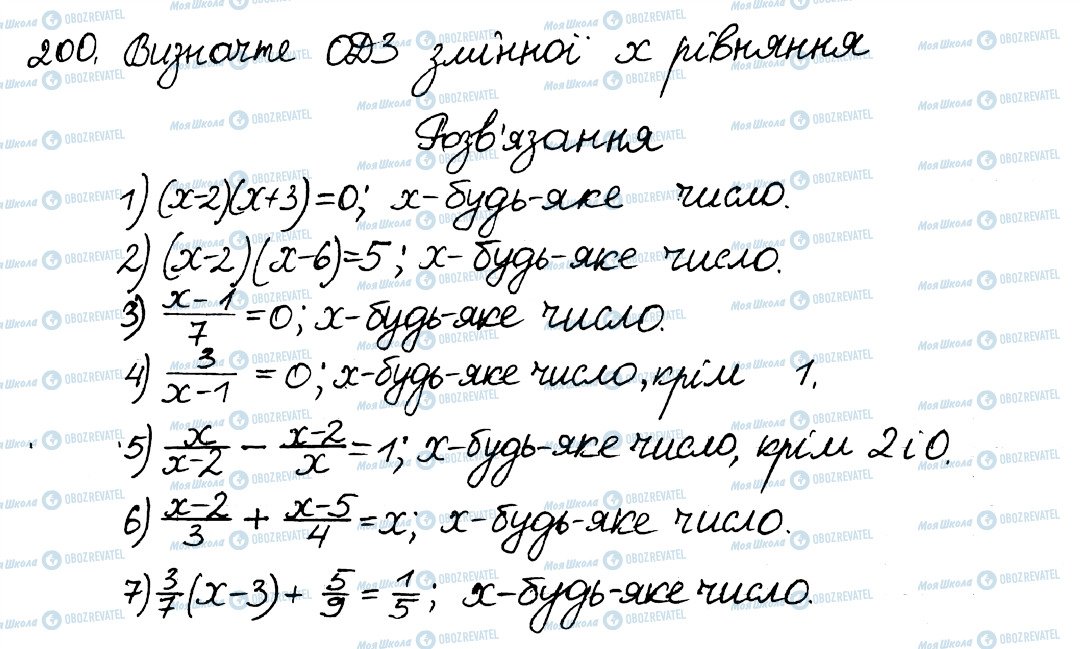 200. Визначте ОДЗ змінної х рівняння
Розв'язання
1) (x-2)(x+3)=0; x-будь-яке число.
2) (x-2)(x-6)=5; x-будь-яке число.
3) \frac{x-1}{7}=0; x-будь-яке число.
4) \frac{3}{x-1}=0; x-будь-яке число, крім 1.
5) \frac{x}{x-2} - \frac{x-2}{x}=1; x-будь-яке число, крім 2 і 0.
6) \frac{x-2}{3} + \frac{x-5}{4}=x; x-будь-яке число.
7) \frac{3}{7}(x-3)+ \frac{5}{9} = \frac{1}{5}; x-будь-яке число.